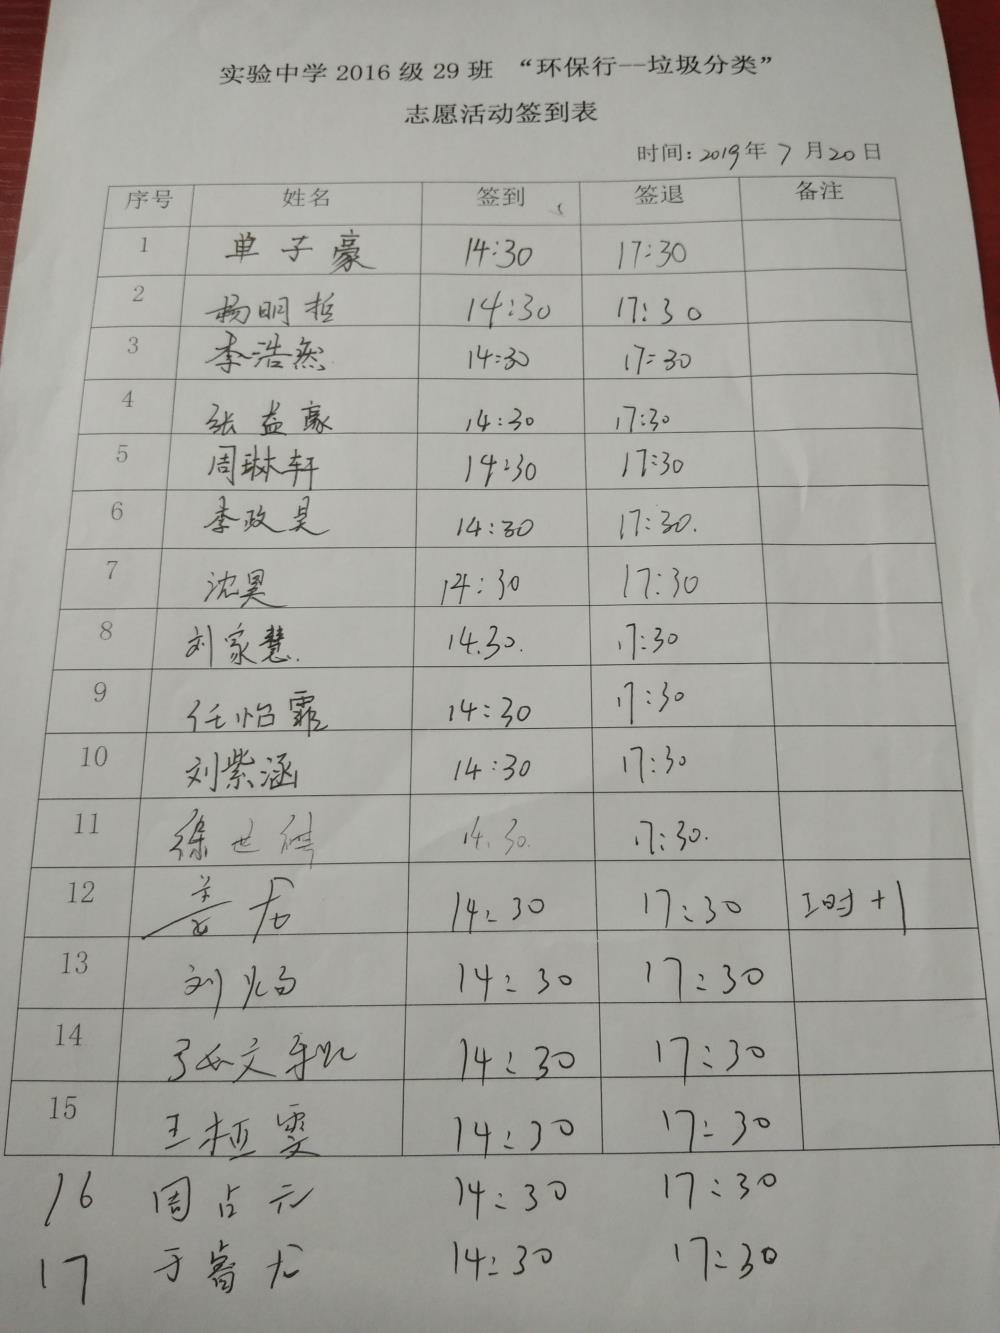 实验中学2016级29班 “环保行--垃圾分类”
志愿活动签到表
时间:2019年7月20日
序号 姓名 签到 签退 备注
1 单子豪 14:30 17:30
2 杨明哲 14:30 17:30
3 李浩然 14:30 17:30
4 张益豪 14:30 17:30
5 周琳轩 14:30 17:30
6 李政昊 14:30 17:30.
7 沈昊 14:30 17:30
8 刘家慧. 14.30. 17:30
9 任怡霏 14:30 17:30
10 刘紫涵 14:30 17:30
11 徐世 14.30. 17:30.
12 14:30 17:30 工时+1
13 刘 14:30 17:30
14 14:30 17:30
15 王桠雯 14:30 17:30
16 周占元 14:30 17:30
17 于睿尤 14:30 17:30